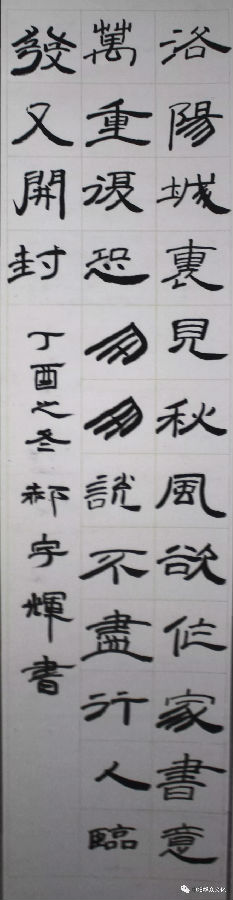 洛陽城裏見秋風欲作家書意
萬重復恐匆匆說不盡行人臨
發又開封
丁酉之冬郝宇輝書